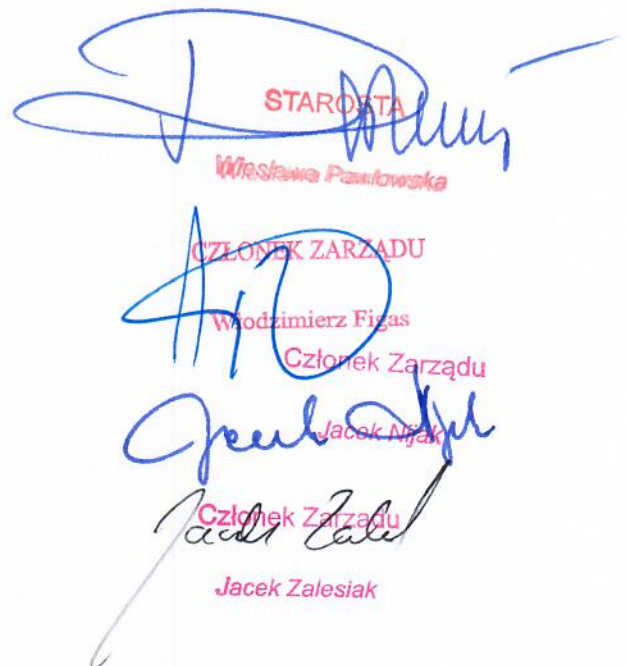 STAROSTA
Wiesława Pawłowska
CZŁONEK ZARZĄDU
Włodzimierz Figas
Członek Zarządu
Jacek Nijak
Członek Zarządu
Jacek Zalesiak